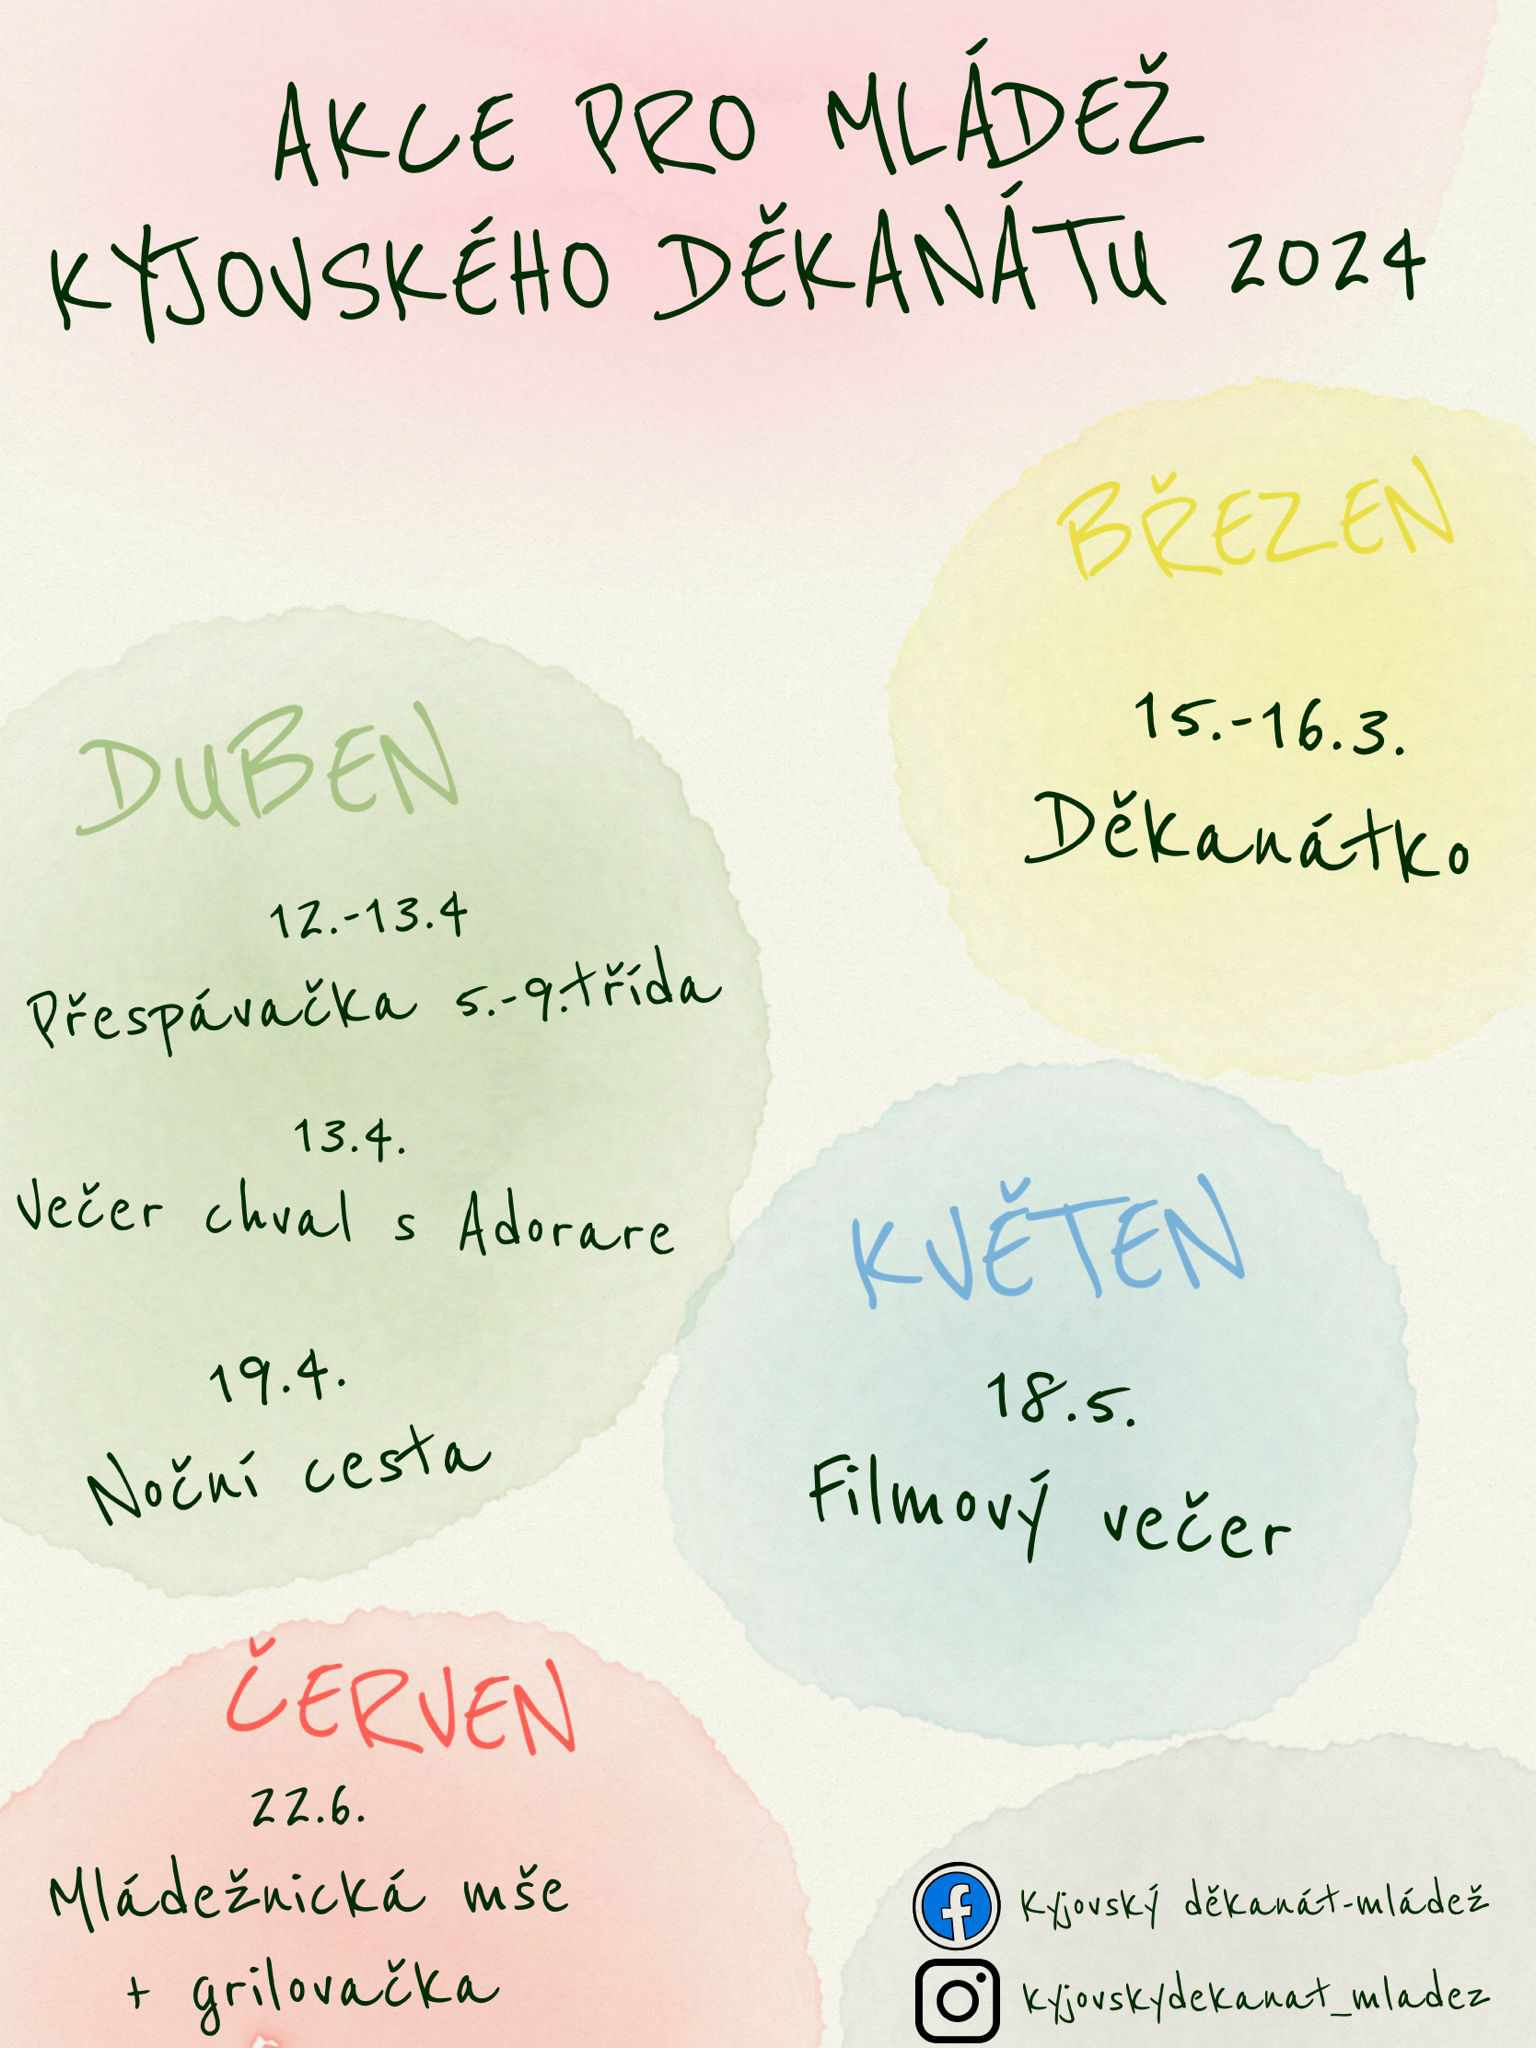 AKCE PRO MLÁDEŽ
KYJOVSKÉHO DĚKANÁTU 2024
BŘEZEN
15.-16.3.
Děkanátko
DUBEN
12.-13.4
Přespávačka 5.-9.třída
13.4.
Večer chval s Adorare
19.4.
Noční cesta
KVĚTEN
18.5.
Filmový večer
ČERVEN
22.6.
Mládežnická mše
+ grilovačka
Kyjovský děkanát-mládež
kyjovskydekanat_mladez